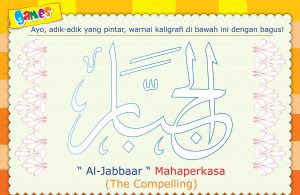 games
Ayo, adik-adik yang pintar, warnai kaligrafi di bawah ini dengan bagus!
الجبار
" Al-Jabbaar " Mahaperkasa
(The Compelling)